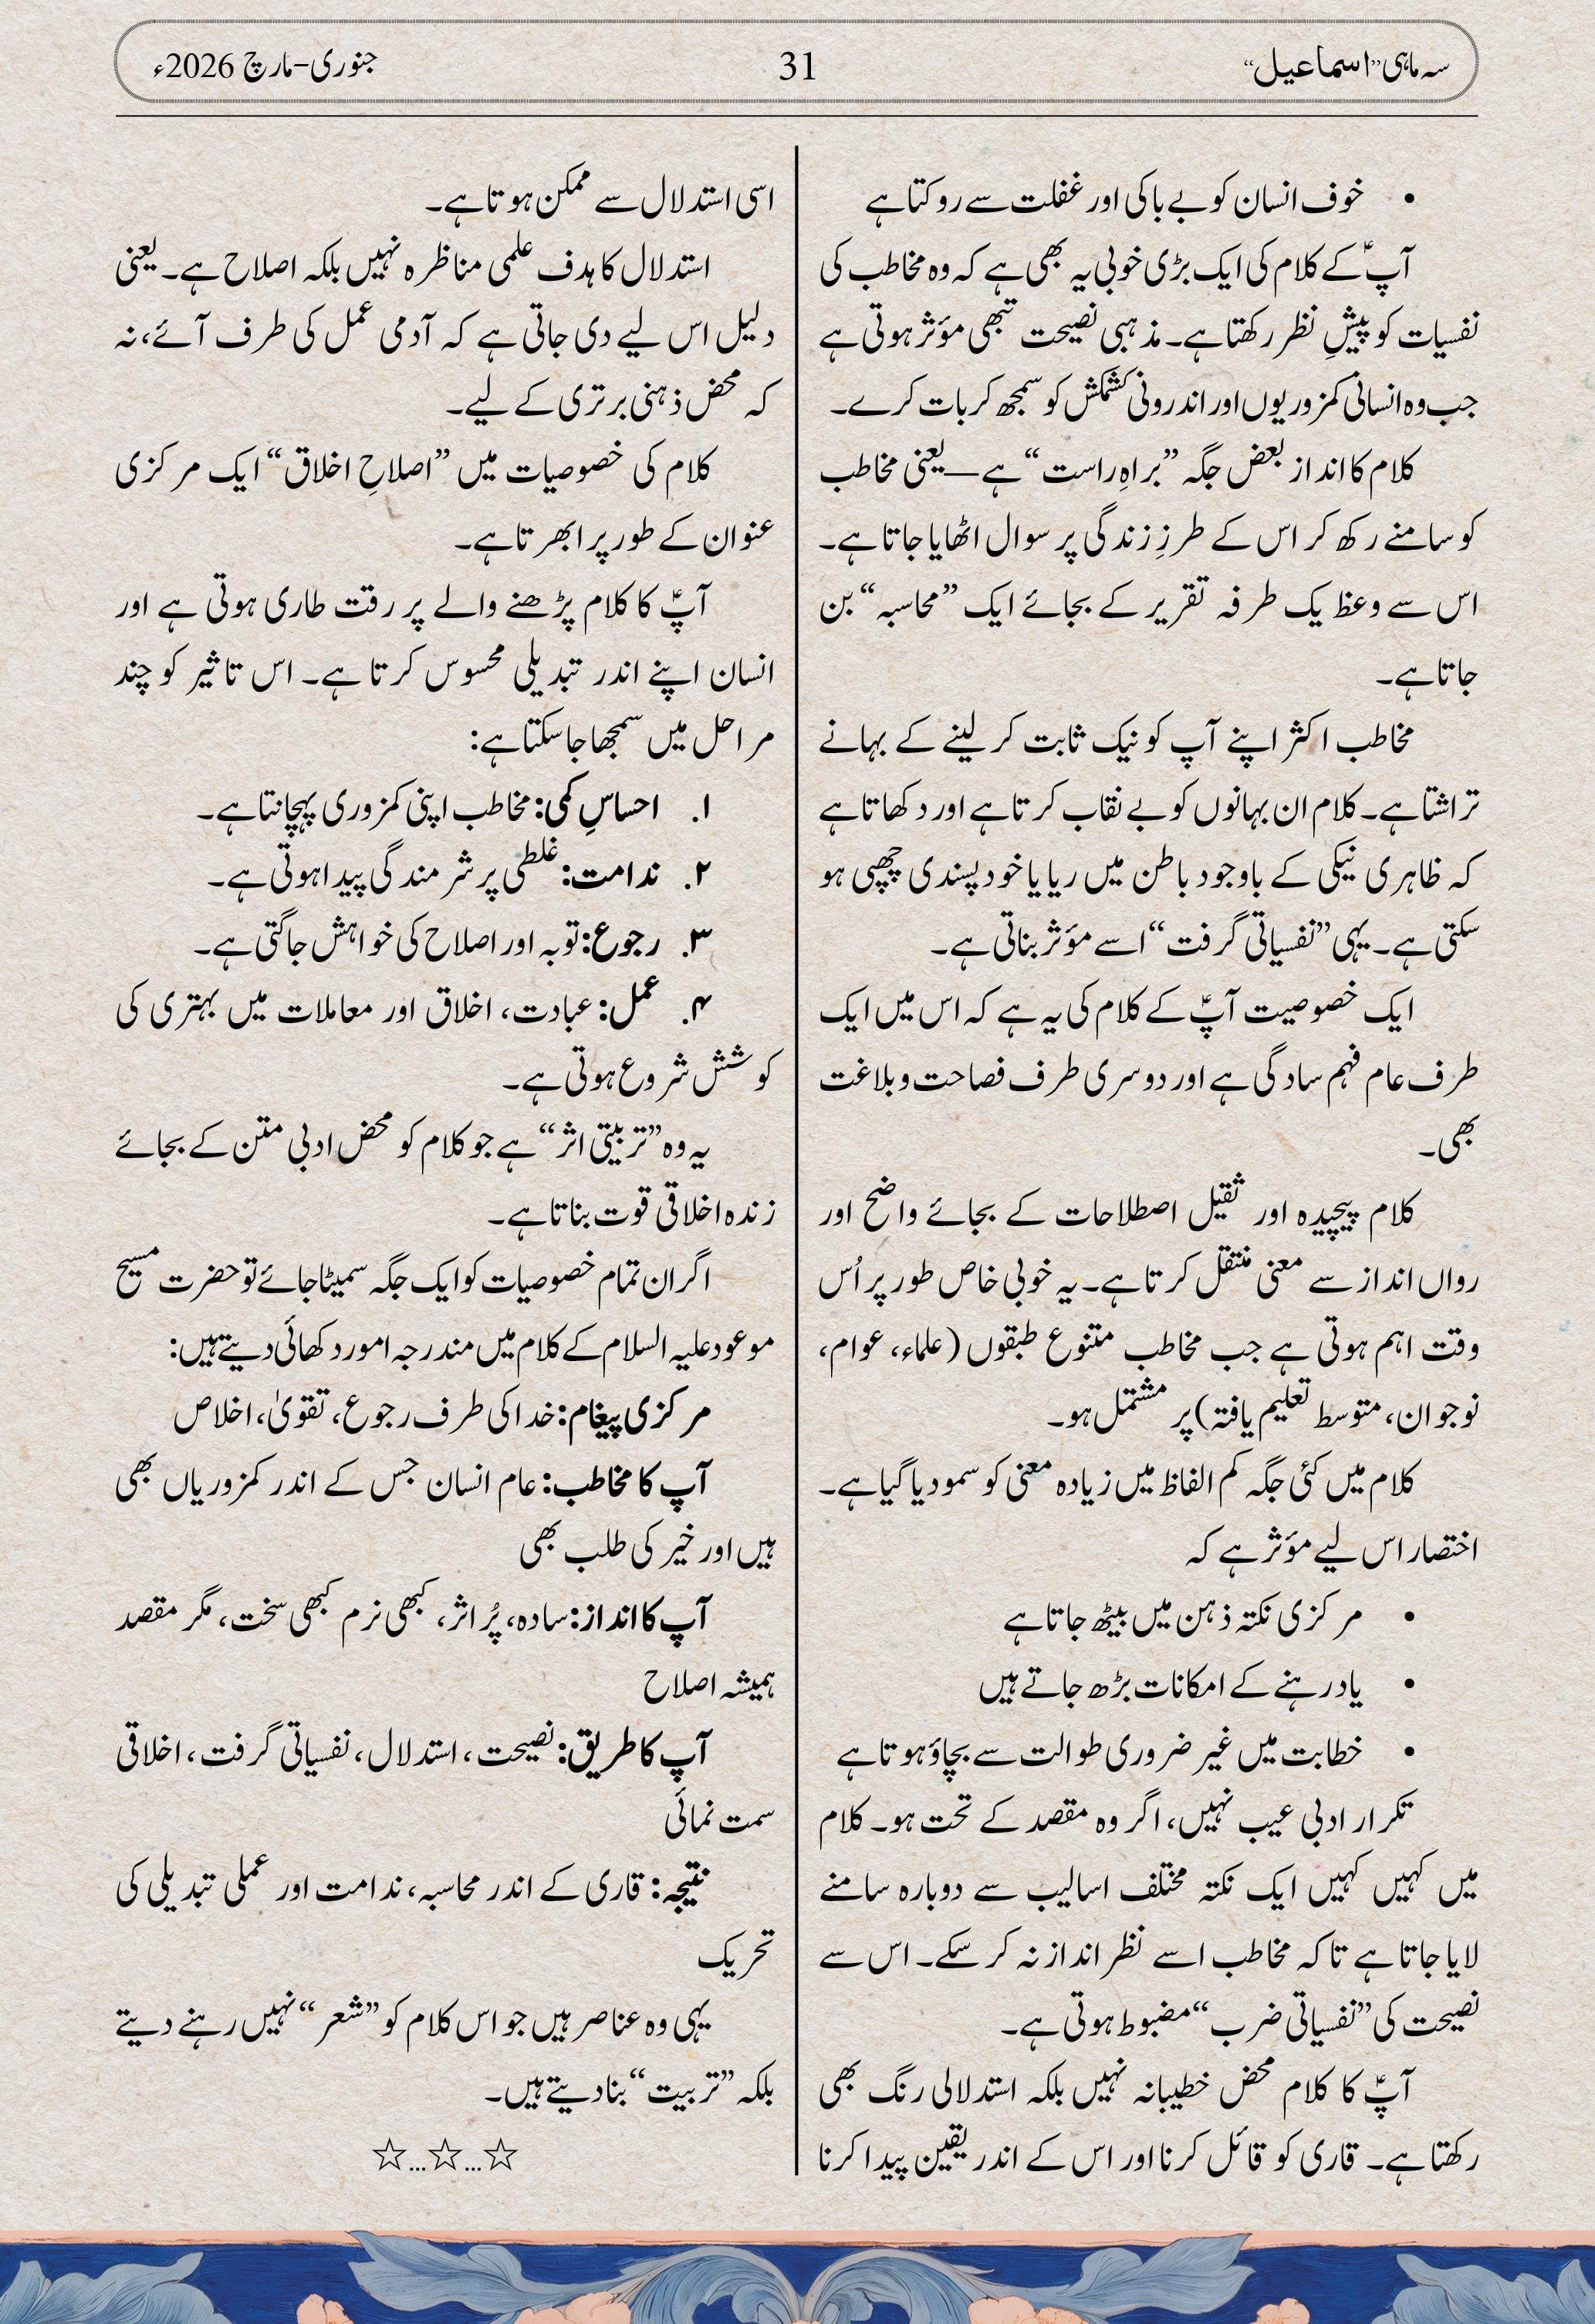 سہ ماہی ”اسماعیل“
31
جنوری–مارچ 2026ء
• خوف انسان کو بے باکی اور غفلت سے روکتا ہے
آپؑ کے کلام کی ایک بڑی خوبی یہ بھی ہے کہ وہ مخاطب کی
نفسیات کو پیشِ نظر رکھتا ہے۔ مذہبی نصیحت تبھی مؤثر ہوتی ہے
جب وہ انسانی کمزوریوں اور اندرونی کشمکش کو سمجھ کر بات کرے۔
کلام کا انداز بعض جگہ ”براہِ راست“ ہے—یعنی مخاطب
کو سامنے رکھ کر اس کے طرزِ زندگی پر سوال اٹھایا جاتا ہے۔
اس سے وعظ یک طرفہ تقریر کے بجائے ایک ”محاسبہ“ بن
جاتا ہے۔
مخاطب اکثر اپنے آپ کو نیک ثابت کر لینے کے بہانے
تراشتا ہے۔ کلام ان بہانوں کو بے نقاب کرتا ہے اور دکھاتا ہے
کہ ظاہری نیکی کے باوجود باطن میں ریا یا خود پسندی چھپی ہو
سکتی ہے۔ یہی ”نفسیاتی گرفت“ اسے مؤثر بناتی ہے۔
ایک خصوصیت آپؑ کے کلام کی یہ ہے کہ اس میں ایک
طرف عام فہم سادگی ہے اور دوسری طرف فصاحت و بلاغت
بھی۔
کلام پیچیدہ اور ثقیل اصطلاحات کے بجائے واضح اور
رواں انداز سے معنی منتقل کرتا ہے۔ یہ خوبی خاص طور پر اُس
وقت اہم ہوتی ہے جب مخاطب متنوع طبقوں (علماء، عوام،
نوجوان، متوسط تعلیم یافتہ) پر مشتمل ہو۔
کلام میں کئی جگہ کم الفاظ میں زیادہ معنی کو سمو دیا گیا ہے۔
اختصار اس لیے مؤثر ہے کہ
• مرکزی نکتہ ذہن میں بیٹھ جاتا ہے
• یاد رہنے کے امکانات بڑھ جاتے ہیں
• خطابت میں غیر ضروری طوالت سے بچاؤ ہوتا ہے
تکرار ادبی عیب نہیں، اگر وہ مقصد کے تحت ہو۔ کلام
میں کہیں کہیں ایک نکتہ مختلف اسالیب سے دوبارہ سامنے
لایا جاتا ہے تاکہ مخاطب اسے نظر انداز نہ کر سکے۔ اس سے
نصیحت کی ”نفسیاتی ضرب“ مضبوط ہوتی ہے۔
آپؑ کا کلام محض خطیبانہ نہیں بلکہ استدلالی رنگ بھی
رکھتا ہے۔ قاری کو قائل کرنا اور اس کے اندر یقین پیدا کرنا
اسی استدلال سے ممکن ہوتا ہے۔
استدلال کا ہدف علمی مناظرہ نہیں بلکہ اصلاح ہے۔ یعنی
دلیل اس لیے دی جاتی ہے کہ آدمی عمل کی طرف آئے، نہ
کہ محض ذہنی برتری کے لیے۔
کلام کی خصوصیات میں ”اصلاحِ اخلاق“ ایک مرکزی
عنوان کے طور پر ابھرتا ہے۔
آپؑ کا کلام پڑھنے والے پر رقت طاری ہوتی ہے اور
انسان اپنے اندر تبدیلی محسوس کرتا ہے۔ اس تاثیر کو چند
مراحل میں سمجھا جا سکتا ہے:
۱. احساسِ کمی: مخاطب اپنی کمزوری پہچانتا ہے۔
۲. ندامت: غلطی پر شرمندگی پیدا ہوتی ہے۔
۳. رجوع: توبہ اور اصلاح کی خواہش جاگتی ہے۔
۴. عمل: عبادت، اخلاق اور معاملات میں بہتری کی
کوشش شروع ہوتی ہے۔
یہ وہ ”تربیتی اثر“ ہے جو کلام کو محض ادبی متن کے بجائے
زندہ اخلاقی قوت بناتا ہے۔
اگر ان تمام خصوصیات کو ایک جگہ سمیٹا جائے تو حضرت مسیح
موعود علیہ السلام کے کلام میں مندرجہ امور دکھائی دیتے ہیں:
مرکزی پیغام: خدا کی طرف رجوع، تقویٰ، اخلاص
آپ کا مخاطب: عام انسان جس کے اندر کمزوریاں بھی
ہیں اور خیر کی طلب بھی
آپ کا انداز: سادہ، پُر اثر، کبھی نرم کبھی سخت، مگر مقصد
ہمیشہ اصلاح
آپ کا طریق: نصیحت، استدلال، نفسیاتی گرفت، اخلاقی
سمت نمائی
نتیجہ: قاری کے اندر محاسبہ، ندامت اور عملی تبدیلی کی
تحریک
یہی وہ عناصر ہیں جو اس کلام کو ”شعر“ نہیں رہنے دیتے
بلکہ ”تربیت“ بنا دیتے ہیں۔
☆…☆…☆